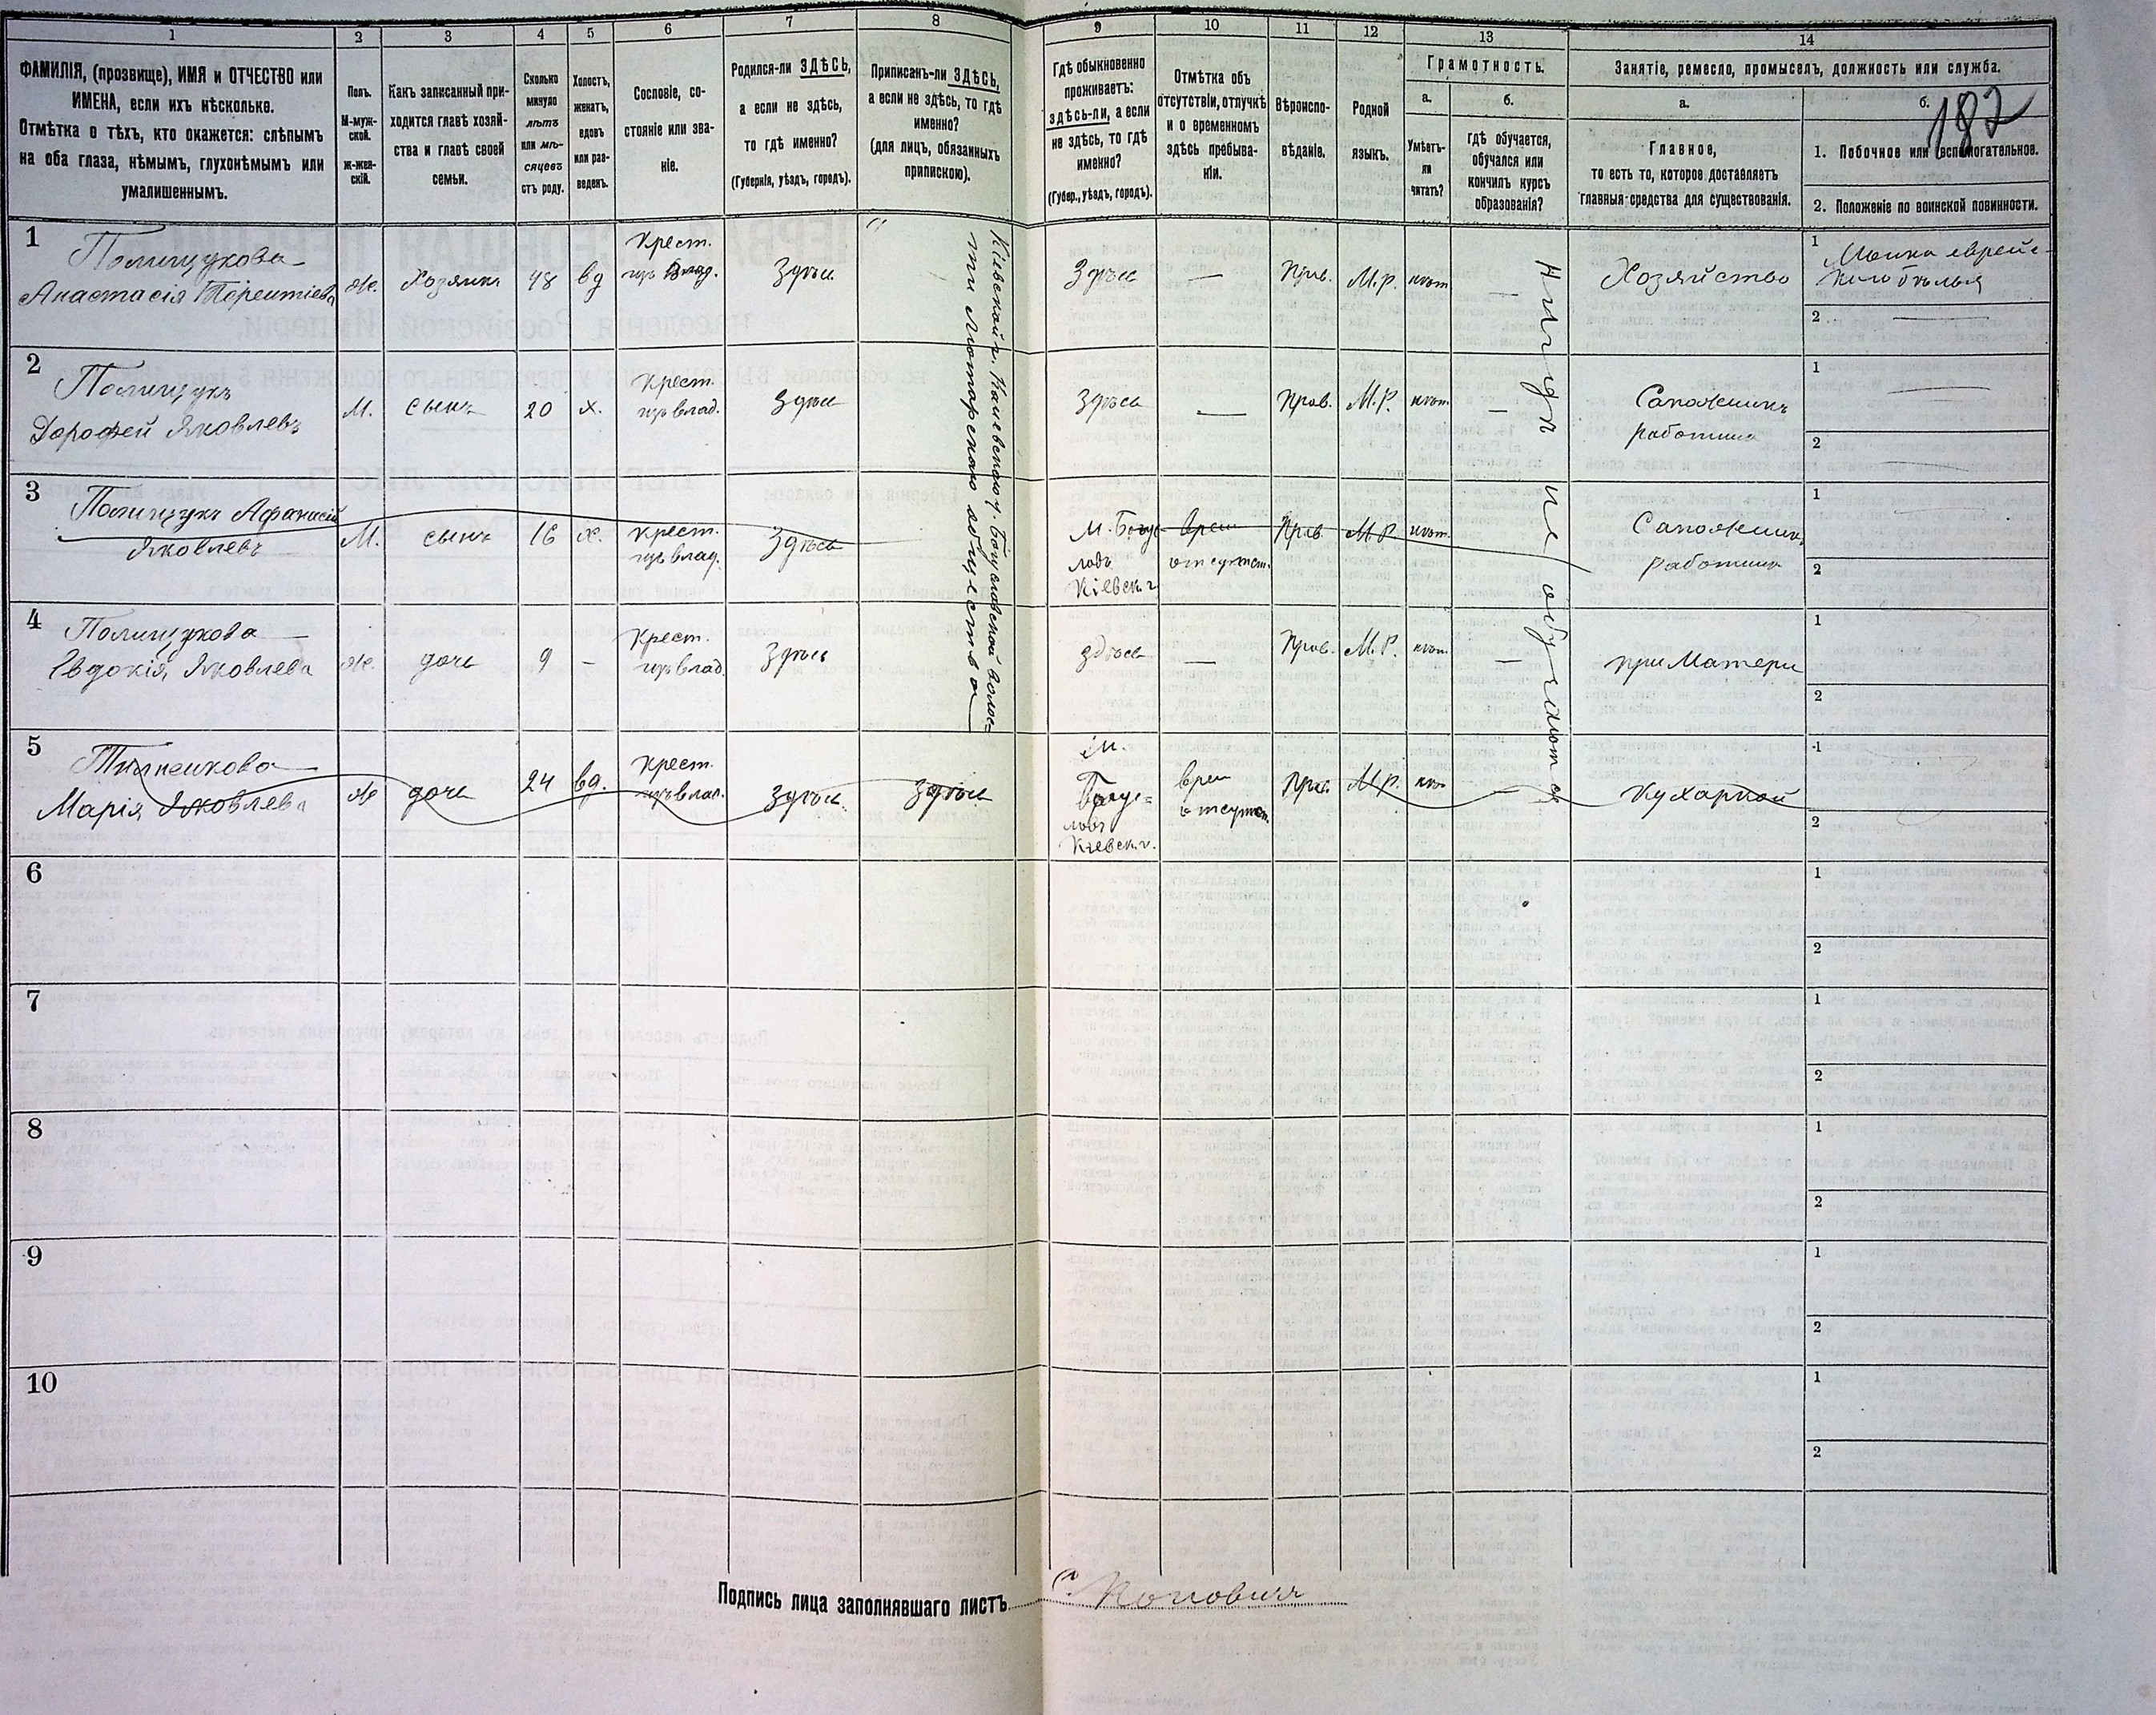 1 2 3 4 5 6 7 8 9 10 11 12 13 14
ФАМИЛІЯ, (прозвище), ИМЯ и ОТЧЕСТВО или
ИМЕНА, если ихъ нѣсколько.
Отмѣтка о тѣхъ, кто окажется: слѣпымъ
на оба глаза, нѣмымъ, глухонѣмымъ или
умалишеннымъ.
Полъ.
М-муж-
ской.
ж-жен-
скій.
Какъ записанный при-
ходится главѣ хозяй-
ства и главѣ своей
семьи.
Сколько
минуло
лѣтъ
или мѣ-
сяцевъ
отъ роду.
Холостъ,
женатъ,
вдовъ
или раз-
веденъ.
Сословіе, со-
стояніе или зва-
ніе.
Родился-ли ЗДѢСЬ,
а если не здѣсь,
то гдѣ именно?
(Губернія, уѣздъ, городъ).
Приписанъ-ли ЗДѢСЬ,
а если не здѣсь, то гдѣ
именно?
(для лицъ, обязанныхъ
припискою).
Гдѣ обыкновенно
проживаетъ:
здѣсь-ли, а если
не здѣсь, то гдѣ
именно?
(Губер., уѣздъ, городъ).
Отмѣтка объ
отсутствіи, отлучкѣ
и о временномъ
здѣсь пребыва-
ніи.
Вѣроиспо-
вѣданіе.
Родной
языкъ.
Грамотность.
а.
Умѣетъ-
ли
читать?
б.
гдѣ обучается,
обучался или
кончилъ курсъ
образованія?
Занятіе, ремесло, промыселъ, должность или служба.
а.
Главное,
то есть то, которое доставляетъ
главныя средства для существованія.
б.
187
1. Побочное или вспомогательное.
2. Положеніе по воинской повинности.
1
Полищукова
Анастасія Терентіева
ж. Хозяйка 48 вд
Крест.
изъ влад.
Здѣсь
Кіевской г. Каневскаго у. Богуславской волос=
ти Мотарскаго общества
Здѣсь — Прав. М.Р. нѣт —
Нигдѣ не обучаются
Хозяйство
1 Мойка еврейс-
каго бѣлья
2
2
Полищукъ
Дорофей Яковлевъ
М. сынъ 20 х.
Крест.
изъ влад.
Здѣсь
Здѣсь — Прав. М.Р. нѣт. —
Сапожникъ
работникъ
1
2
3
Полищукъ Афанасій
Яковлевъ
М. сынъ 16 х.
Крест.
изъ влад.
Здѣсь
м. Богус
лавъ
Кіевск. г.
врем
отсутст.
Прав. М.Р. нѣт.
Сапожник.
работник
1
2
4
Полищукова
Евдокія Яковлева
ж. дочь 9 —
Крест.
изъ влад.
Здѣсь
здѣсь — Прав. М.Р. нѣт. —
при Матери
1
2
5
Марія Яковлева
ж дочь 24 вд.
Крест.
изъ влад.
Здѣсь. Здѣсь
м.
Богус=
лавъ
Кіевск. г.
врем
отсутст.
Прав М.Р. нѣт
Кухаркой
1
2
6
1
2
7
1
2
8
1
2
9
1
2
10
1
2
Подпись лица заполнявшаго листъ